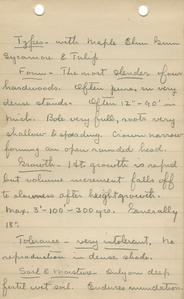 Types - with Maple Elm Gum
Sycamore & Tulip
Form - The most slender of our
hardwoods. Often pure, in very
dense stands. Often 12" - 90' in
Mich. Bole very full, roots very
shallow & spreading. Crown narrow
forming an open rounded head.
Growth - 1st growth is rapid
but volume increment falls off
to slowness after height growth.
Max. 3' - 100 - 300 yrs. Generally
18".
Tolerance - very intolerant. No
reproduction in dense shade.
Soil & Moisture - Only on deep
fertil wet soil. Endures inundation.